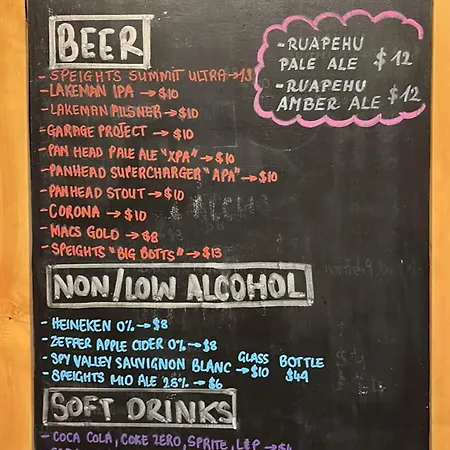 BEER
- SPEIGHTS SUMMIT ULTRA →
- LAKEMAN IPA → $10
- LAKEMAN PILSNER → $10
- GARAGE PROJECT → $10
- PAN HEAD PALE ALE "XPA" → $10
- PANHEAD SUPERCHARGER "APA" → $10
- PANHEAD STOUT → $10
- CORONA → $10
- MACS GOLD → $8
- SPEIGHTS "BIG BOTTS" → $13
- RUAPEHU
PALE ALE $12
- RUAPEHU
AMBER ALE $12
NON/LOW ALCOHOL
- HEINEKEN 0% → $8
- ZEFFER APPLE CIDER 0% → $8
- SPY VALLEY SAUVIGNON BLANC GLASS → $10 BOTTLE $49
- SPEIGHTS MID ALE 2.5% → $6
SOFT DRINKS
- COCA COLA, COKE ZERO, SPRITE, L&P →